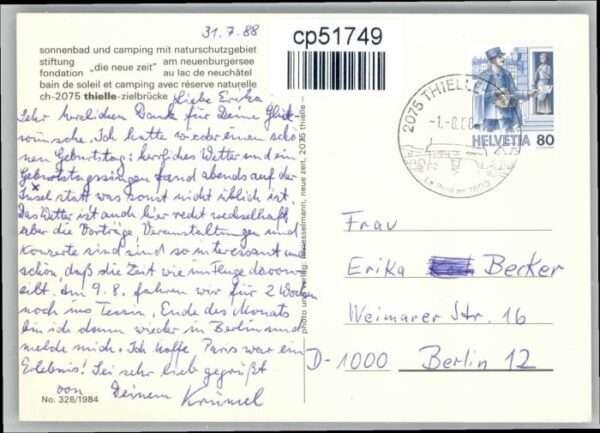 31.7.88
cp51749
sonnenbad und camping mit naturschutzgebiet
stiftung am neuenburgersee
fondation „die neue zeit" au lac de neuchâtel
bain de soleil et camping avec réserve naturelle
ch-2075 thielle-zielbrücke
Liebe Erika
Sehr herzlichen Dank für Deine Glück-
wünsche. Ich hatte wieder einen schö-
nen Geburtstag: herrliches Wetter und ein
Geburtstagssingen fand abends auf der
Insel statt was sonst nicht üblich ist.
Das Wetter ist auch hier recht wechselhaft,
aber die Vorträge Veranstaltungen und
Konzerte sind so interessant und
schön, daß die Zeit wie im Fluge davon-
eilt. Am 9.8. fahren wir für 2 Wochen
noch ins Tessin. Ende des Monats
bin ich dann wieder in Berlin und
melde mich. Ich hoffe, Paris war ein
Erlebnis! Sei sehr lieb gegrüßt
von Deinem Krümel
No. 326/1984
neue zeit, 2075 thielle
2075 THIELLE
HELVETIA 80
Frau
Erika Becker
Weimarer Str. 16
D-1000 Berlin 12